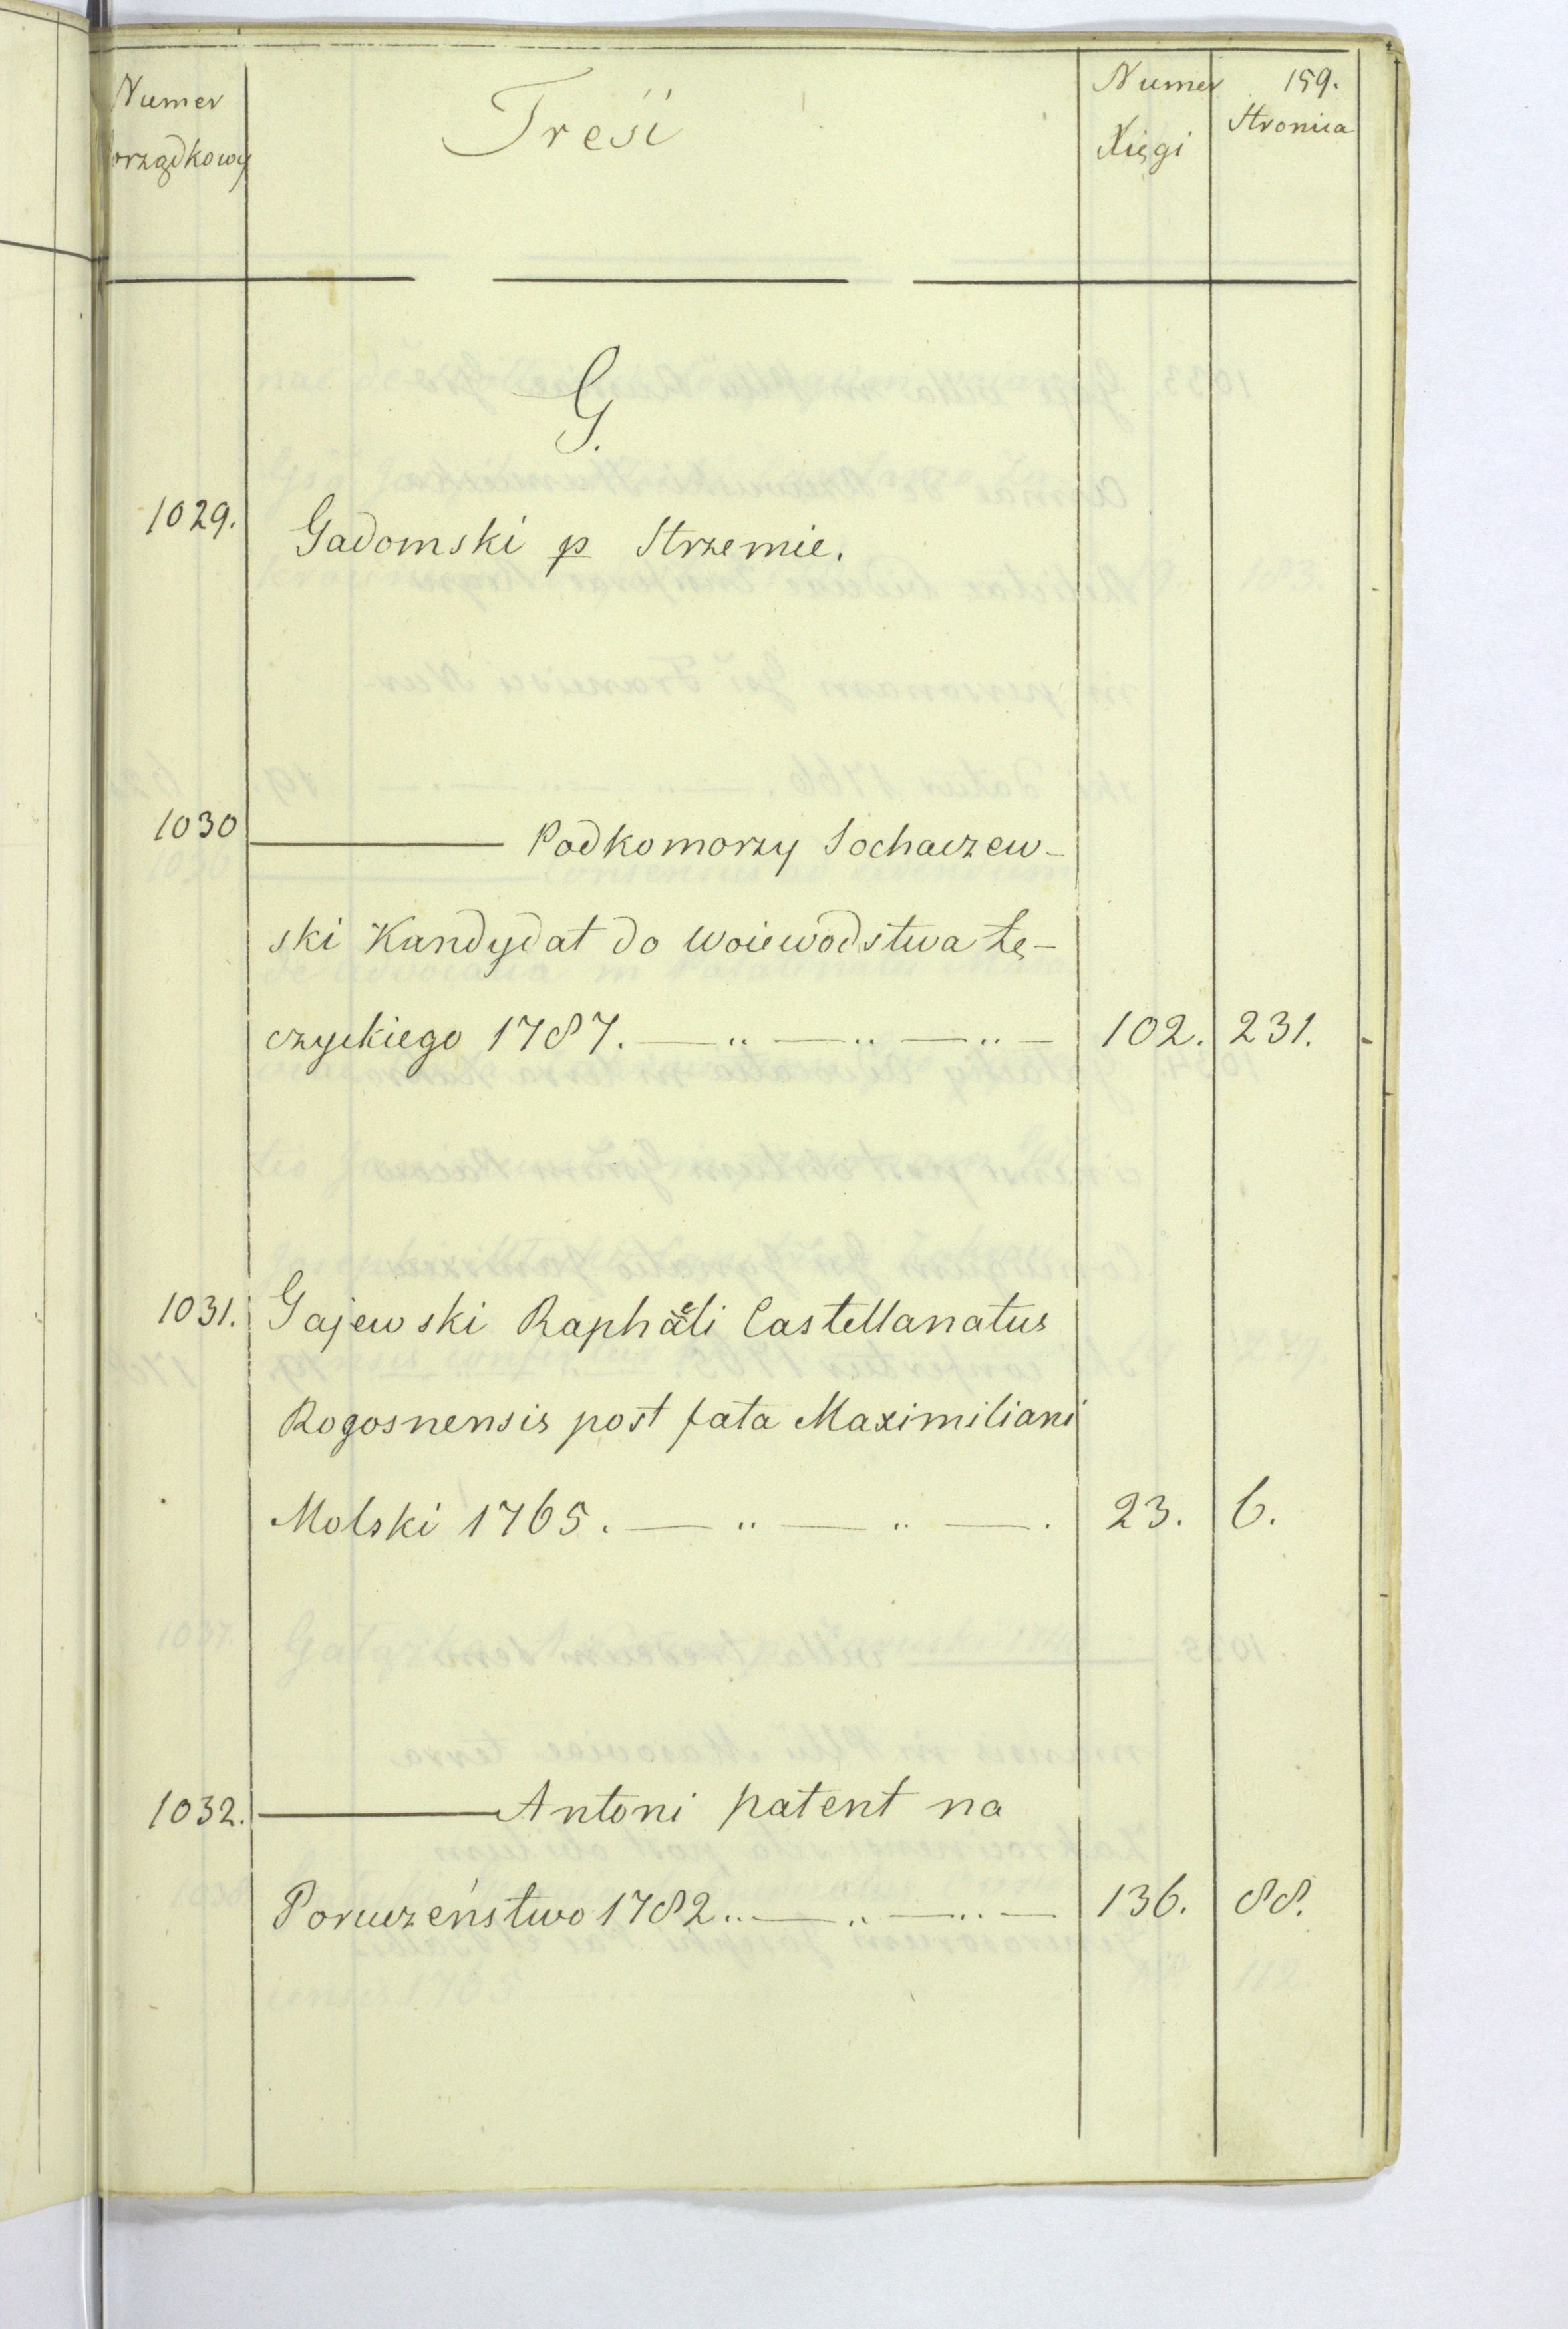 Numer porządkowy
Treść
Numer Xięgi
159.
Stronica
G.
1029. Gadomski p Strzemie.
1030 ——— Podkomorzy Sochaczew-
ski Kandydat do Woiewodstwa Łę-
czyckiego 1787. — „ — „ — „ — 102. 231.
1031. Gajewski Raphaeli Castellanatus
Rogosnensis post fata Maximiliani
Molski 1765. — „ — „ — . 23. 6.
1032. ——— Antoni patent na
Poruczeństwo 1782.. — „ — „ — 136. 88.